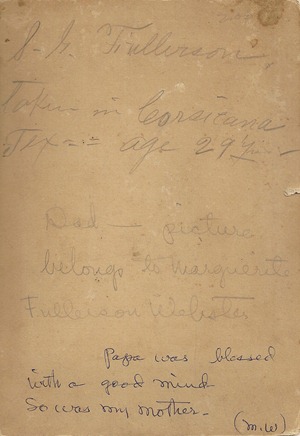 S. G. Fullerson,
taken in Corsicana
Tex -- age 29 yrs -
Dad - picture
belongs to Marguerite
Fullerson Webster
Papa was blessed
with a good mind
So was my mother -
(m.w)